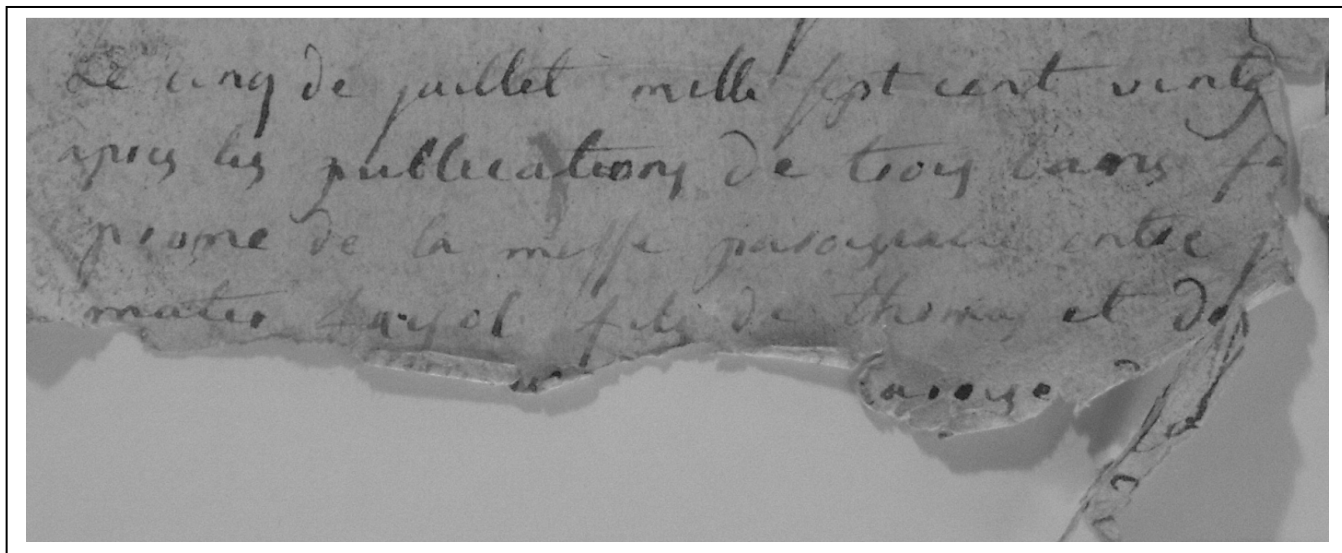 Le cinq de juillet mille sept cent vingt
apres les publications de trois bans fa
prosne de la messe paroissialle entre
fils de thomas et de
paroisse